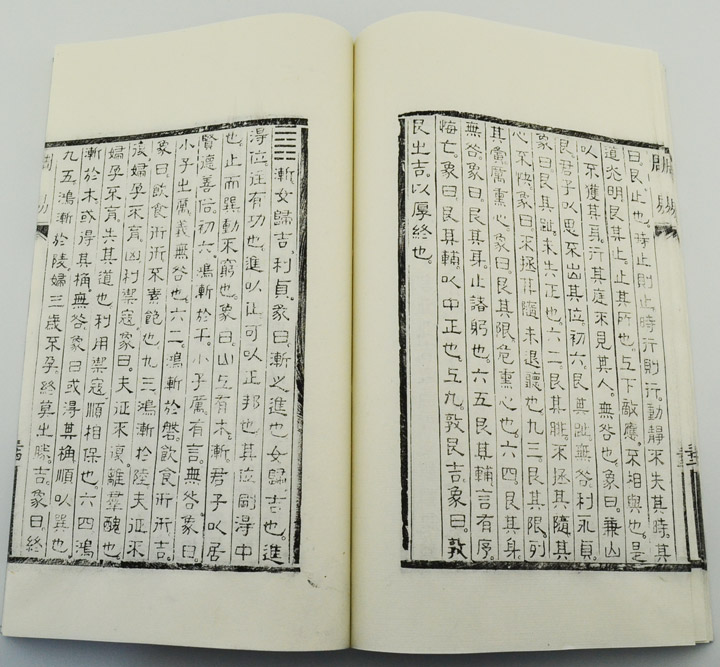 周易
曰艮。止也。時止則止。時行則行。動靜不失其時。其
道光明。艮其止。止其所也。上下敵應。不相與也。是
以不獲其身。行其庭不見其人。無咎也。象曰。兼山
艮。君子以思不出其位。初六。艮其趾。無咎。利永貞。
象曰。艮其趾。未失正也。六二。艮其腓。不拯其隨。其
心不快。象曰。不拯其隨。未退聽也。九三。艮其限。列
其夤。厲熏心。象曰。艮其限。危熏心也。六四。艮其身。
無咎。象曰。艮其身。止諸躬也。六五。艮其輔。言有序。
悔亡。象曰。艮其輔。以中正也。上九。敦艮吉。象曰。敦
艮之吉。以厚終也。
䷴漸女歸吉。利貞。彖曰。漸之進也。女歸吉也。進
得位。往有功也。進以正。可以正邦也。其位。剛得中
也。止而巽。動不窮也。象曰。山上有木。漸。君子以居
賢德善俗。初六。鴻漸於干。小子厲。有言。無咎。象曰。
小子之厲。義無咎也。六二。鴻漸於磐。飲食衎衎。吉。
象曰。飲食衎衎。不素飽也。九三。鴻漸於陸。夫征不
復。婦孕不育。凶。利禦寇。象曰。夫征不復。離羣醜也。
婦孕不育。失其道也。利用禦寇。順相保也。六四。鴻
漸於木。或得其桷。無咎。象曰。或得其桷。順以巽也。
九五。鴻漸於陵。婦三歲不孕。終莫之勝。吉。象曰。終
周易